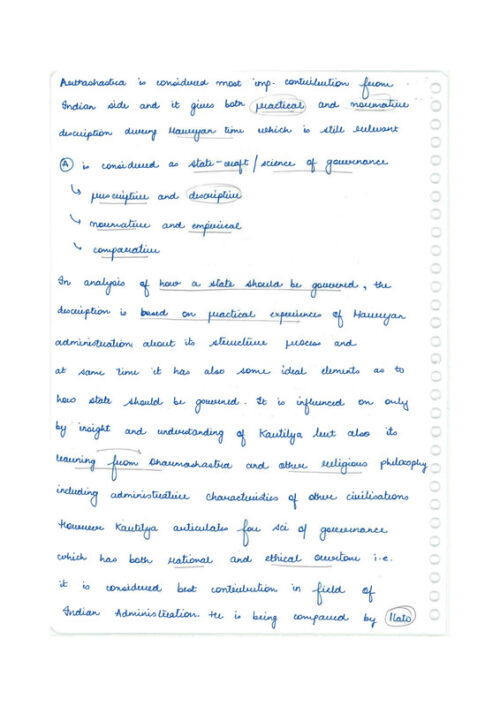 Arthashastra is considered most imp. contribution from
Indian side and it gives both practical and normative
description during Mauryan time which is still relevant
Ⓐ is considered as state-craft / science of governance
↳ prescriptive and descriptive
↳ normative and empirical
↳ comparative
In analysis of how a state should be governed, the
description is based on practical experiences of Mauryan
administration, about its structure process and
at same time it has also some ideal elements as to
how state should be governed. It is influenced on only
by insight and understanding of Kautilya but also its
learning from Dharmashastra and other religious philosophy
including administrative characteristics of other civilisations
However Kautilya articulates for sci of governance
which has both rational and ethical overtone i.e.
it is considered best contribution in field of
Indian Administration. He is being compared by Plato